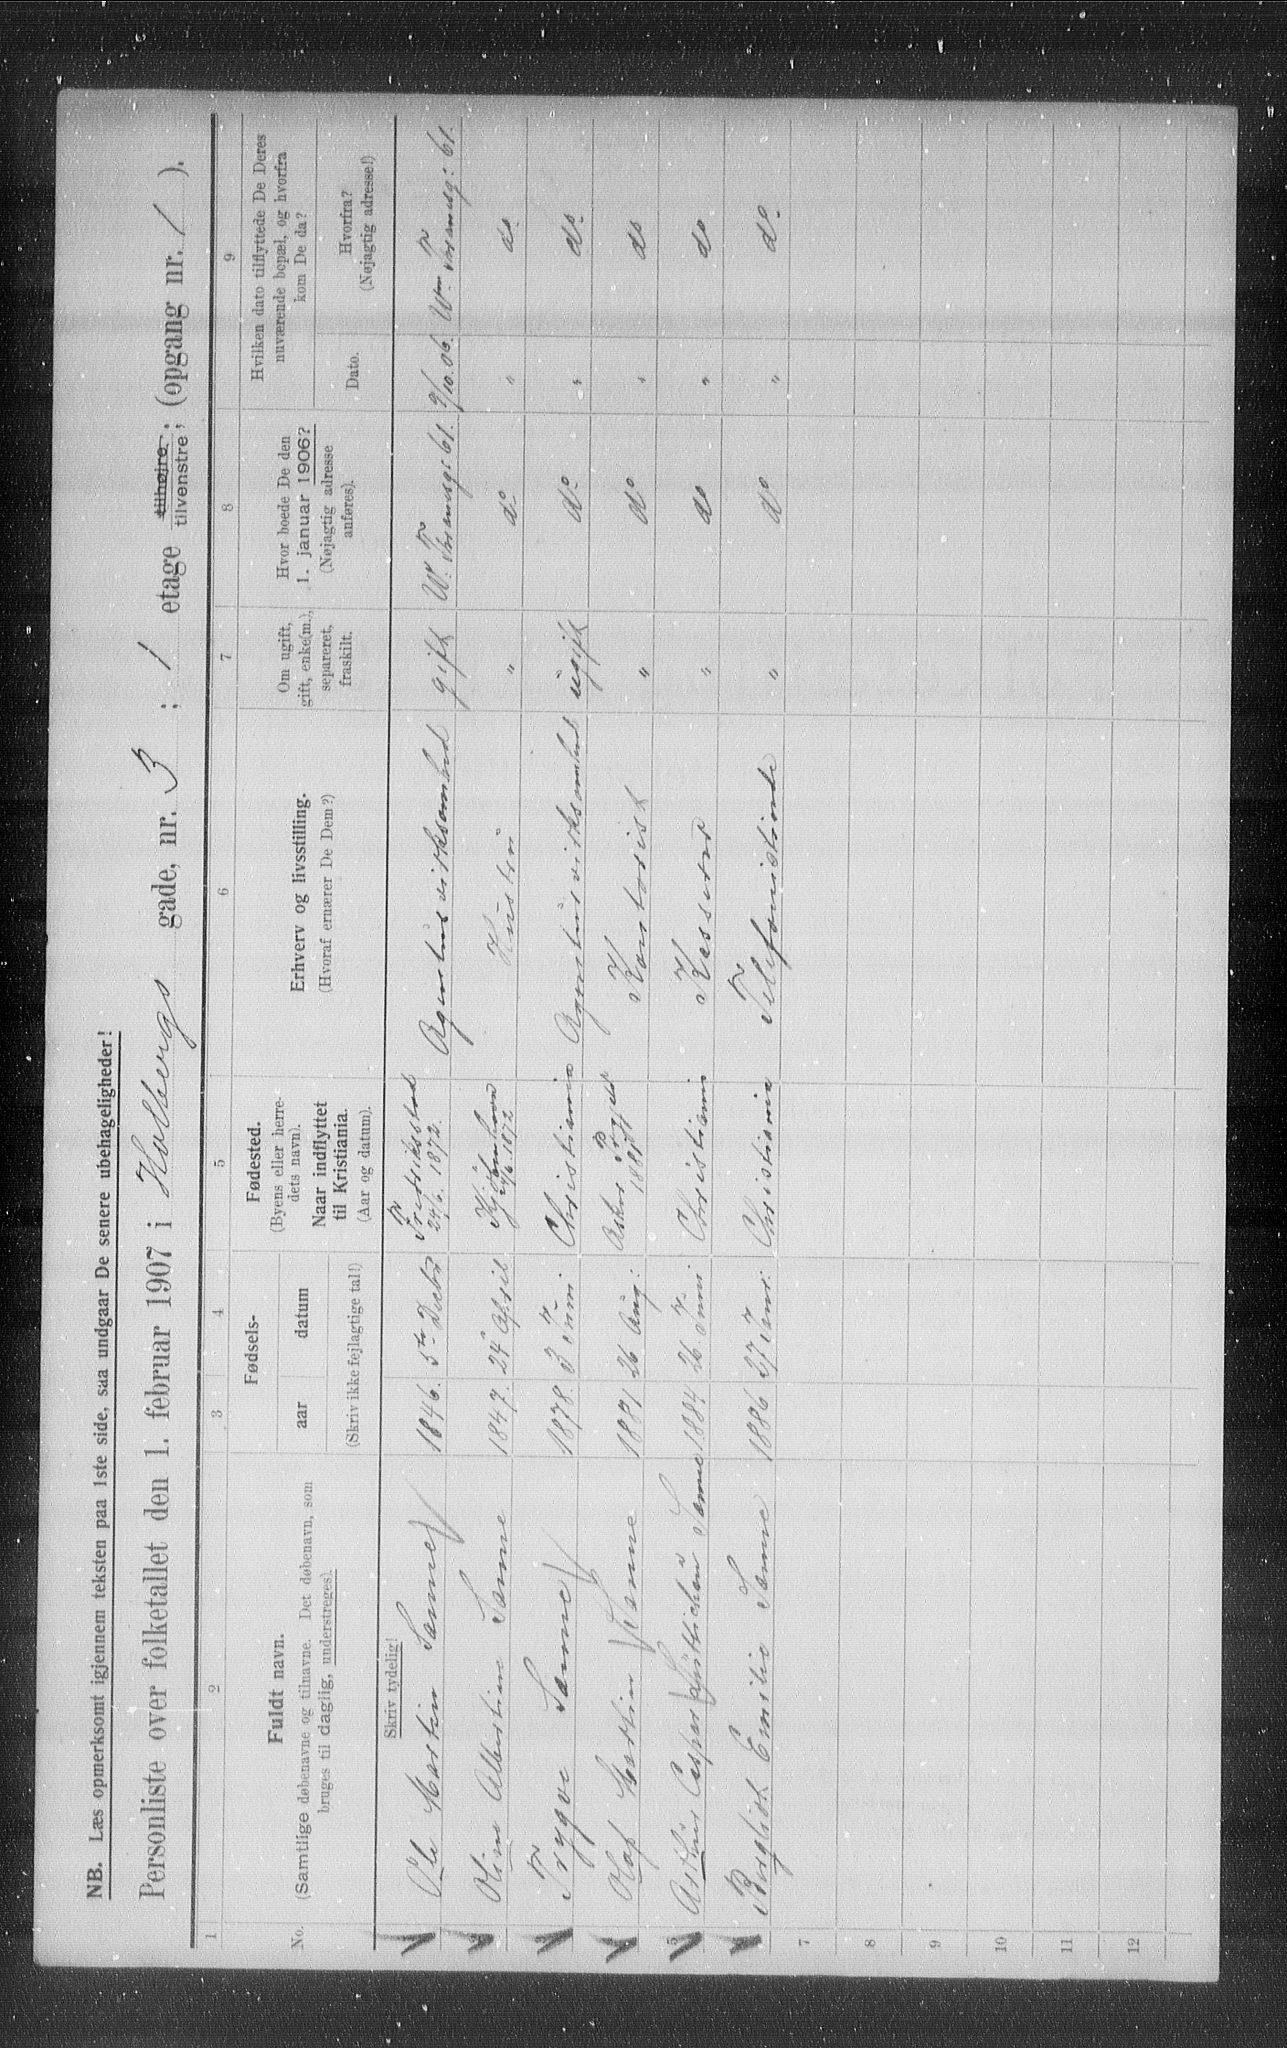 NB. Læs opmerksomt igjennem teksten paa 1ste side, saa undgaar De senere ubehageligheder!
Personliste over folketallet den 1. februar 1907 i Holbergs gade, nr. 3 ; 1 etage tilhøjre, tilvenstre; (opgang nr. 1 ).
1 2 3 4 5 6 7 8 9
No.
Fuldt navn.
(Samtlige døbenavne og tilnavne. Det døbenavn, som
bruges til daglig, understreges).
Fødsels-
aar datum
(Skriv ikke fejlagtige tal!)
Fødested.
(Byens eller herre-
dets navn).
Naar indflyttet
til Kristiania.
(Aar og datum).
Erhverv og livsstilling.
(Hvoraf ernærer De Dem?)
Om ugift,
gift, enke(m.),
separeret,
fraskilt.
Hvor boede De den
1. januar 1906?
(Nøjagtig adresse
anføres).
Hvilken dato tilflyttede De Deres
nuværende bopæl, og hvorfra
kom De da?
Dato.
Hvorfra?
(Nøjagtig adresse!)
Skriv tydelig!
Ole Martin Sanne 1846. 5te Decbr Fredriksstad 24/6. 1872. Agenturvirksomhed gift W. Thranesg: 61. 9/10.06. Wm Thranesg: 61.
Oline Albertine Sanne 1847. 24 April Kjøbenhavn 1872 Hustru " do " do
Trygve Sanne 1878. 3 Juni Christiania Agenturvirksomhed ugift do " do
Olaf Martin Sanne 1881 26 Aug: Asker 1881 Kontorist " do " do
5 Arthur Casper Sanne 1884 26 Juni Christiania Kasserer " do " do
Bergliot Emilie Sanne 1886 27 Christiania Telefonistinde " do " do
7
8
9
10
11
12